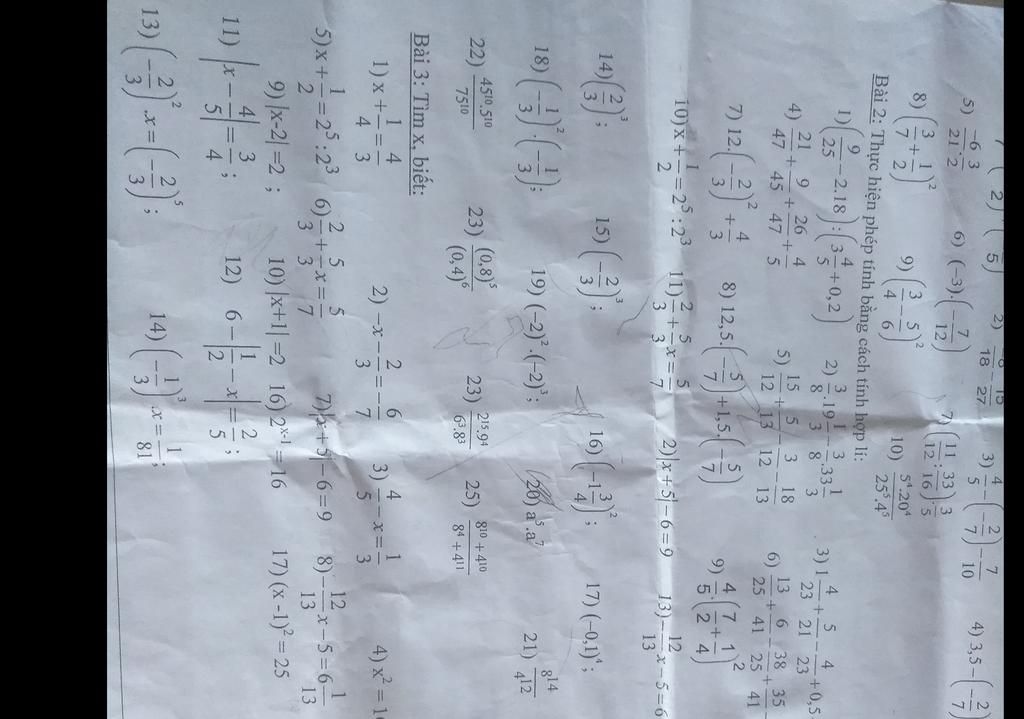 2) 3) 4/5 − (−2/7) − 7/10 4) 3,5 − (−2/7)
5) −6/21 · 3/2 6) (−3).(−7/12) 7) (11/12 : 33/16) · 3/5
8) (3/7 + 1/2)² 9) (3/4 − 5/6)² 10) 5⁴.20⁴/25⁵.4⁵
Bài 2: Thực hiện phép tính bằng cách tính hợp lí:
1) (9/25 − 2.18) : (3 4/5 + 0,2) 2) 3/8 · 19 1/3 − 3/8 · 33 1/3 3) 1 4/23 + 5/21 − 4/23 + 0,5
4) 21/47 + 9/45 + 26/47 + 4/5 5) 15/12 + 5/13 − 3/12 − 18/13 6) 13/25 + 6/41 − 38/25 + 35/41 −
7) 12.(−2/3)² + 4/3 8) 12,5.(−5/7) + 1,5.(−5/7) 9) 4/5 · (7/2 + 1/4)²
10) x + 1/2 = 2⁵ : 2³ 11) 2/3 + 5/3 x = 5/7 2) |x + 5| − 6 = 9 13) −12/13 x − 5 = 6
14) (2/3)³ ; 15) (−2/3)³ ; 16) (−1 3/4)² ; 17) (−0,1)⁴ ;
18) (−1/3)² . (−1/3) ; 19) (−2)² .(−2)³ ; 20) a⁵ .a⁷ 21) 8¹⁴/4¹²
22) 45¹⁰.5¹⁰/75¹⁰ 23) (0,8)⁵/(0,4)⁶ 23) 2¹⁵.9⁴/6³.8³ 25) 8¹⁰ + 4¹⁰/8⁴ + 4¹¹
Bài 3: Tìm x, biết:
1) x + 1/4 = 4/3 2) −x − 2/3 = −6/7 3) 4/5 − x = 1/3 4) x² =
5) x + 1/2 = 2⁵ : 2³ 6) 2/3 + 5/3 x = 5/7 7) |x + 5| − 6 = 9 8) −12/13 x − 5 = 6 1/13
9) |x-2| = 2 ; 10) |x+1| = 2 16) 2ˣ⁻¹ = 16 17) (x -1)² = 25
11) |x − 4/5| = 3/4 ; 12) 6 − |1/2 − x| = 2/5 ;
13) (−2/3)² .x = (−2/3)⁵ ; 14) (−1/3)³ .x = 1/81 ;